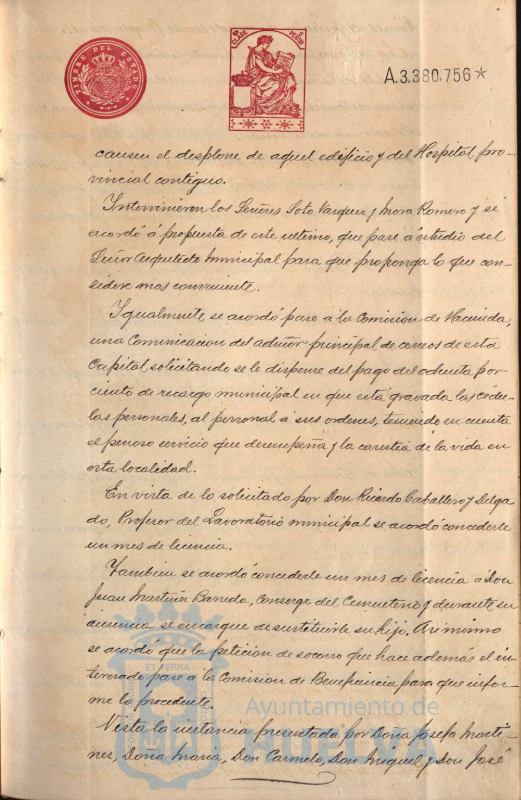 TIMBRE DEL ESTADO
CLASE
PESETAS
A.3.380,756*
causen el desplome de aquel edificio y del Hospital pro-
vincial contiguo.
Intervinieron los Señores Soto Vazquez y Mora Romero y se
acordó á propuesta de este ultimo, que pase á estudio del
Señor Arquitecto municipal para que proponga lo que con-
sidere mas conveniente.
Igualmente, se acordó pase a la Comision de Hacienda,
una Comunicacion del admor principal de correos de esta
Capital solicitando se le dispense del pago del ochenta por
ciento de recargo municipal en que está gravada las cédu-
las personales, al personal á sus ordenes, teniendo en cuenta
el penoso servicio que desempeña y la carestia de la vida en
esta localidad.
En vista de lo solicitado por Don Ricardo Caballero y Delga-
do, Profesor del Lavoratorio municipal se acordó concederle
un mes de licencia.
Tambien se acordó concederle un mes de licencia á Don
Juan Martin Barreda, Conserge del Cementerio y durante su
ausencia se encargue de sustituirle su hijo. Asi mismo
se acordó que la peticion de socorro que hace además el in-
teresado pase a la Comision de Beneficencia para que infor-
me lo procedente.
Vista la instancia presentada por Doña Josefa Marti-
nez, Doña Maria, Don Carmelo, Don Miguel y Don José
ET TERRA
Ayuntamiento de
HUELVA